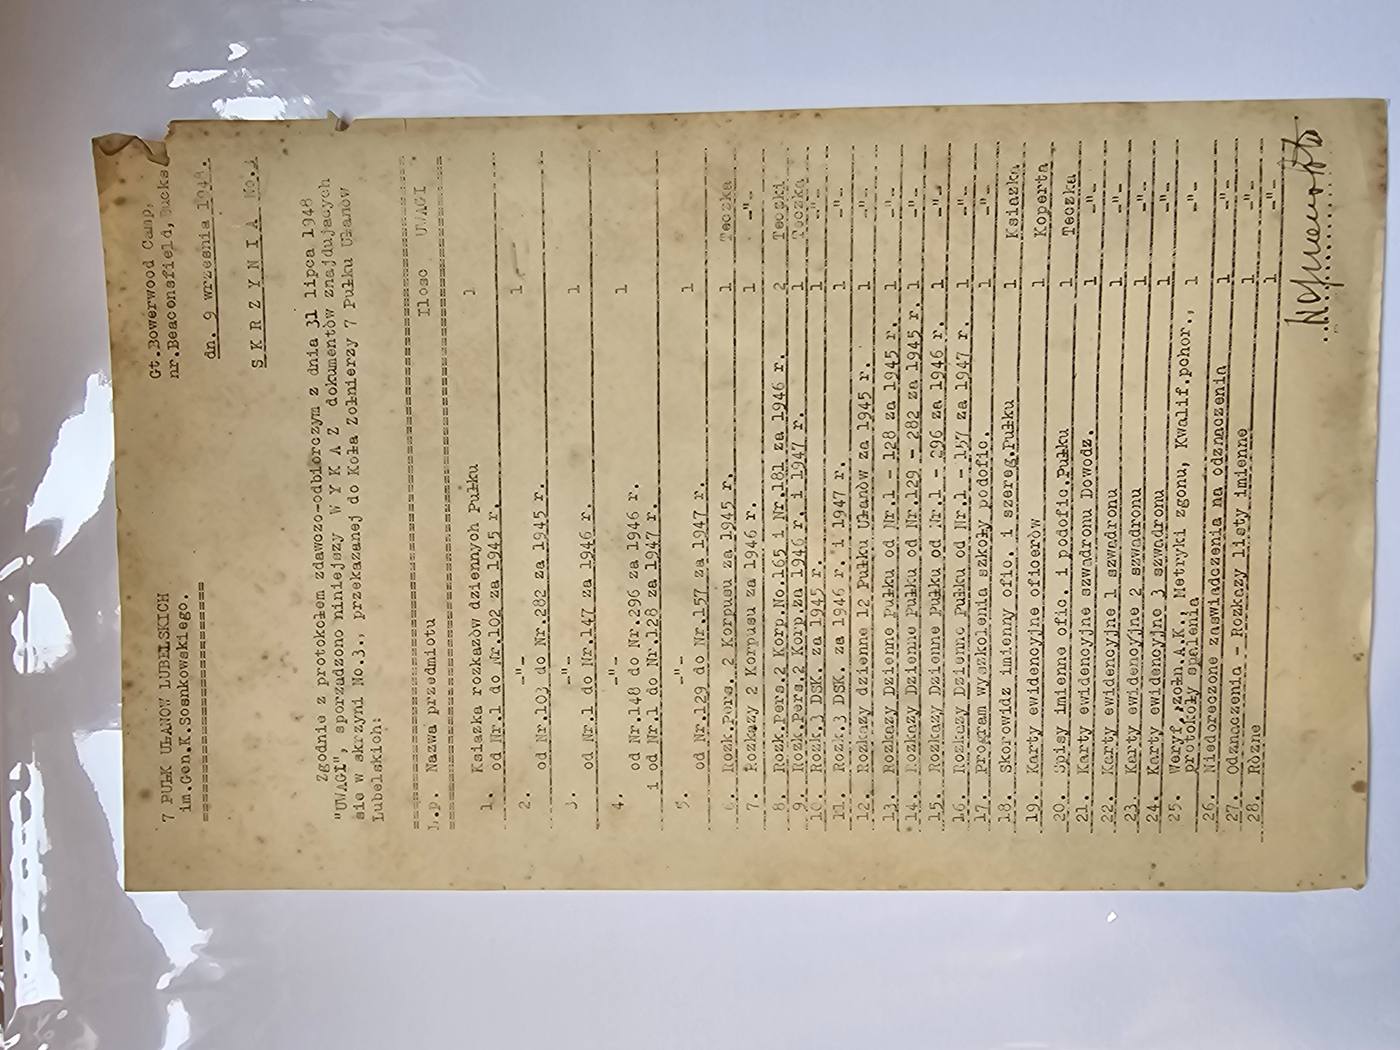 7 PUŁK UŁANOW LUBELSKICH
im.Gen.K.Sosnkowskiego.
Gt.Bowerwood Camp,
nr.Beaconsfield, Bucks
dn. 9 września 1948.
S K R Z Y N I A No.3
Zgodnie z protokołem zdawczo-odbiorczym z dnia 31 lipca 1948
"UWAGI", sporządzono niniejszy W Y K A Z dokumentòw znajdujacych
sie w skrzyni No.3., przekazanej do Koła Zołnierzy 7 Pułku Ułanòw
Lubelskich:
L.p. Nazwa przedmiotu Ilosc UWAGI
1. Ksiazka rozkazòw dziennych Pułku
od Nr.1 do Nr.102 za 1945 r. 1
2. -"-
od Nr.103 do Nr.282 za 1945 r. 1
3. -"-
od Nr.1 do Nr.147 za 1946 r. 1
4. -"-
od Nr.148 do Nr.296 za 1946 r.
i od Nr.1 do Nr.128 za 1947 r. 1
5. -"-
od Nr.129 do Nr.157 za 1947 r. 1
6. Rozk.Pers. 2 Korpusu za 1945 r. 1 Teczka
7. Rozkazy 2 Korpusu za 1946 r. 1 -"-
8. Rozk.Pers.2 Korp.No.165 i Nr.181 za 1946 r. 2 Teczki
9. Rozk.Pers.2 Korp.za 1946 r. i 1947 r. 1 Teczka
10. Rozk.3 DSK. za 1945 r. 1 -"-
11. Rozk.3 DSK. za 1946 r. i 1947 r. 1 -"-
12. Rozkazy dzienne 12 Pułku Ułanòw za 1945 r. 1 -"-
13. Rozkazy Dzienne Pułku od Nr.1 - 128 za 1945 r. 1 -"-
14. Rozkazy Dzienne Pułku od Nr.129 - 282 za 1945 r. 1 -"-
15. Rozkazy Dzienne Pułku od Nr.1 - 296 za 1946 r. 1 -"-
16. Rozkazy Dzienne Pułku od Nr.1 - 157 za 1947 r. 1 -"-
17. Program wyszkolenia szkoły podofic. 1 -"-
18. Skorowidz imienny ofic. i szereg.Pułku 1 Ksiazka
19. Karty ewidencyjne oficeròw 1 Koperta
20. Spisy imienne ofic. i podofic.Pułku 1 Teczka
21. Karty ewidencyjne szwadronu Dowodz. 1 -"-
22. Karty ewidencyjne 1 szwadronu 1 -"-
23. Karty ewidencyjne 2 szwadronu 1 -"-
24. Karty ewidencyjne 3 szwadronu 1 -"-
25. Weryf.żołn.A.K., Metryki zgonu, Kwalif.pchor.,
protokoły spalenia 1 -"-
26. Niedoreczone zaswiadczenia na odznaczenia 1 -"-
27. Odznaczenia - Rozkazy listy imienne 1 -"-
28. Ròzne 1 -"-